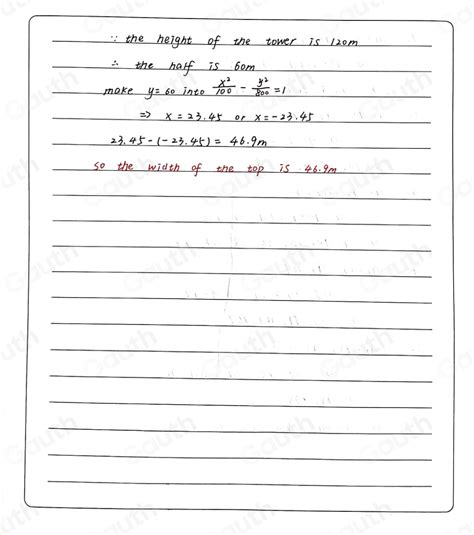 ∵ the height of the tower is 120m
∴ the half is 60m
make y=60 into x²/100 - y²/800 =1
=> x = 23.45 or x=-23.45
23.45-(-23.45) = 46.9m
so the width of the top is 46.9m